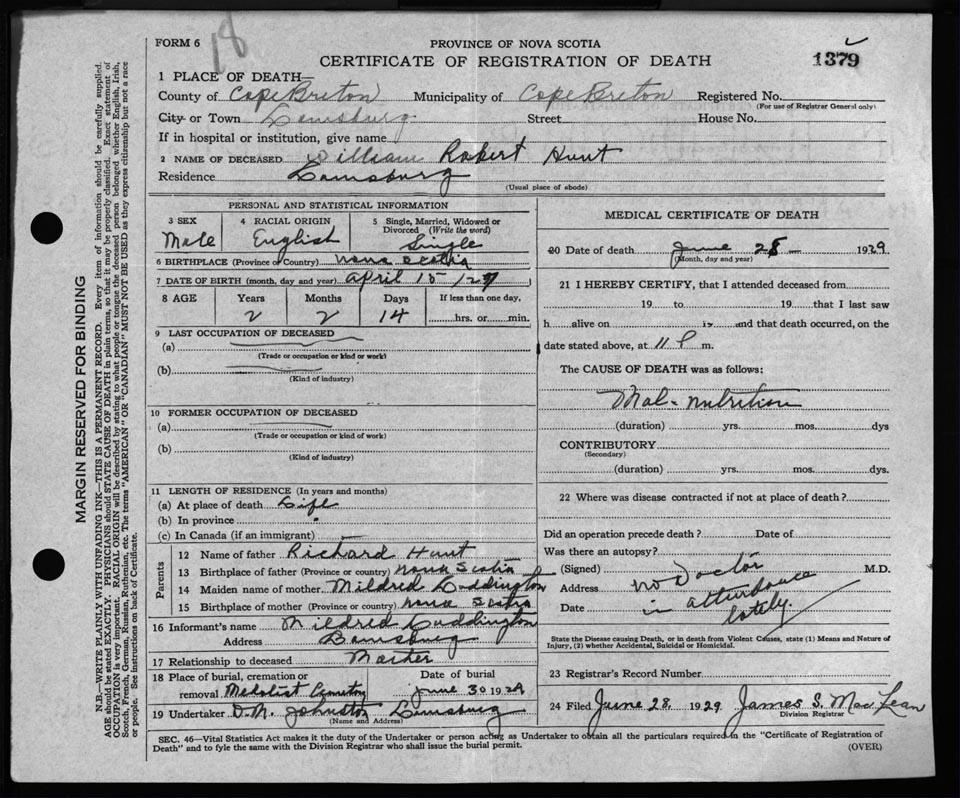 18
FORM 6
PROVINCE OF NOVA SCOTIA
CERTIFICATE OF REGISTRATION OF DEATH
1379
1 PLACE OF DEATH—
County of Cape Breton Municipality of Cape Breton Registered No.
(For use of Registrar General only)
City or Town Louisburg Street House No.
If in hospital or institution, give name
2 NAME OF DECEASED William Robert Hunt
Residence Louisburg
(Usual place of abode)
PERSONAL AND STATISTICAL INFORMATION
3 SEX Male
4 RACIAL ORIGIN English
5 Single, Married, Widowed or Divorced (Write the word) Single
6 BIRTHPLACE (Province or Country) Nova Scotia
7 DATE OF BIRTH (month, day and year) April 15/27
8 AGE Years Months Days If less than one day,
2 2 14 hrs. or min.
9 LAST OCCUPATION OF DECEASED
(a)
(Trade or occupation or kind or work)
(b)
(Kind of industry)
10 FORMER OCCUPATION OF DECEASED
(a)
(Trade or occupation or kind of work)
(b)
(Kind of industry)
11 LENGTH OF RESIDENCE (In years and months)
(a) At place of death Life
(b) In province
(c) In Canada (if an immigrant)
Parents
12 Name of father Richard Hunt
13 Birthplace of father (Province or country) Nova Scotia
14 Maiden name of mother Mildred Luddington
15 Birthplace of mother (Province or country) Nova Scotia
16 Informant's name Mildred Luddington
Address Louisburg
17 Relationship to deceased Mother
18 Place of burial, cremation or Date of burial
removal Methodist Cemetery June 30 1929
19 Undertaker D.M. Johnston Louisburg
(Name and Address)
MEDICAL CERTIFICATE OF DEATH
20 Date of death June 28 — 1929.
(Month, day and year)
21 I HEREBY CERTIFY, that I attended deceased from
19 to 19 that I last saw
h alive on 19 and that death occurred, on the
date stated above, at 11 P m.
The CAUSE OF DEATH was as follows:
Mal-nutrition
(duration) yrs. mos. dys
CONTRIBUTORY
(Secondary)
(duration) yrs. mos. dys.
22 Where was disease contracted if not at place of death?
Did an operation precede death? Date of
Was there an autopsy?
(Signed) M.D.
Address
Date
no Doctor
in attendance
lately.
State the Disease causing Death, or in death from Violent Causes, state (1) Means and Nature of
Injury, (2) whether Accidental, Suicidal or Homicidal.
23 Registrar's Record Number
24 Filed June 28, 1929 James S. MacLean
Division Registrar
SEC. 46—Vital Statistics Act makes it the duty of the Undertaker or person acting as Undertaker to obtain all the particulars required in the "Certificate of Registration of
Death" and to fyle the same with the Division Registrar who shall issue the burial permit.
(OVER)
MARGIN RESERVED FOR BINDING
N.B.—WRITE PLAINLY WITH UNFADING INK—THIS IS A PERMANENT RECORD. Every item of information should be carefully supplied.
AGE should be stated EXACTLY. PHYSICIANS should STATE CAUSE OF DEATH in plain terms, so that it may be properly classified. Exact statement of
OCCUPATION is very important. RACIAL ORIGIN will be described by stating to what people or tongue the deceased person belonged whether English, Irish,
Scotch, French, German, Russian, Ruthenian, etc. The terms "AMERICAN" OR "CANADIAN" MUST NOT BE USED as they express citizenship but not a race
or people. See instructions on back of Certificate.